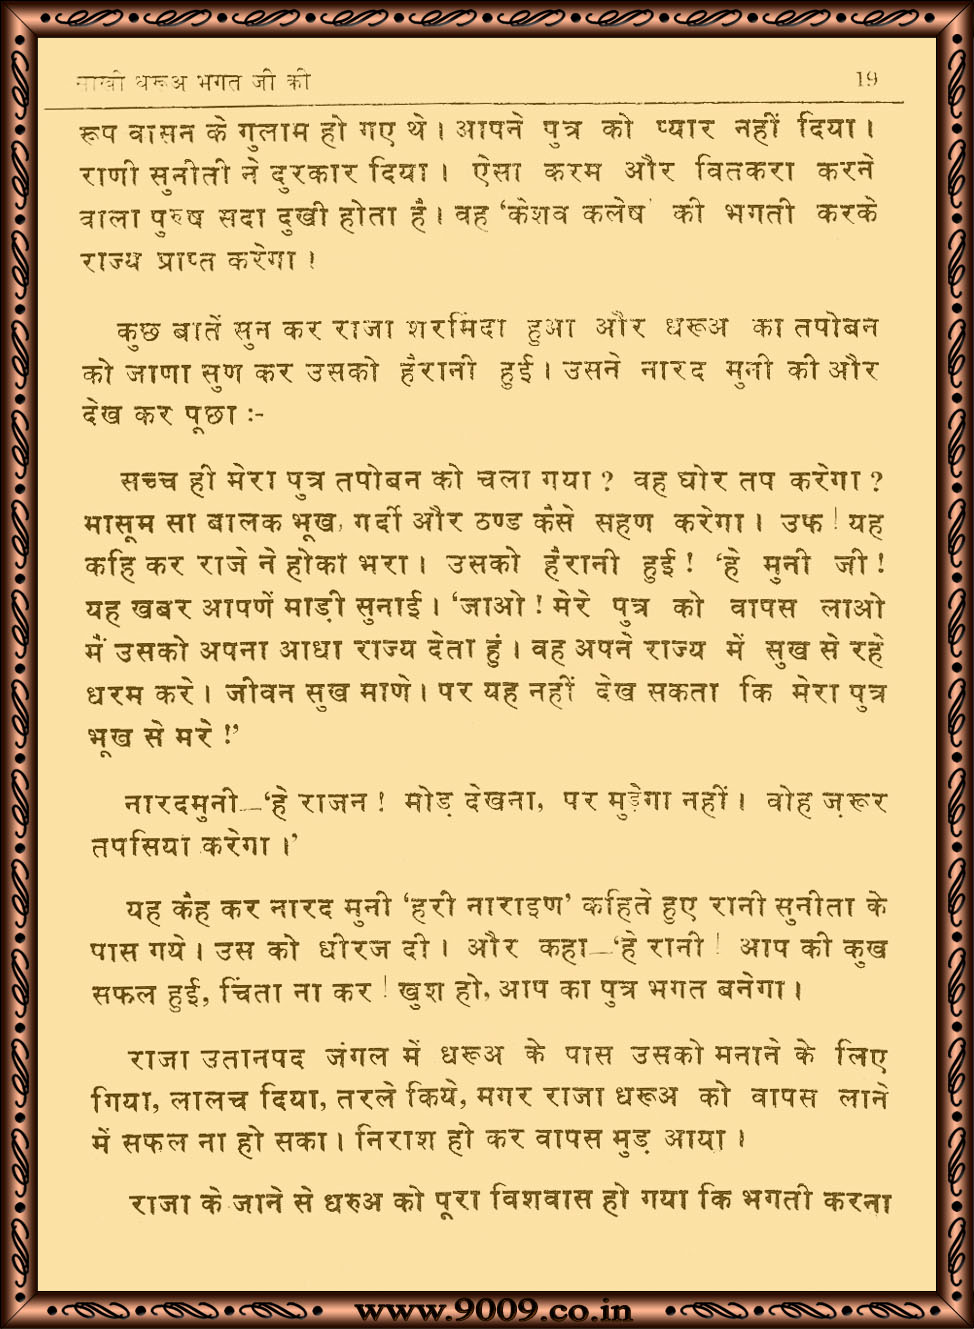 साखी धरूअ भगत जी की 19
रूप वासन के गुलाम हो गए थे। आपने पुत्र को प्यार नहीं दिया।
राणी सुनीती ने दुरकार दिया। ऐसा करम और वितकरा करने
वाला पुरुष सदा दुखी होता है। वह ‘केशव कलेष’ की भगती करके
राज्य प्राप्त करेगा।
कुछ बातें सुन कर राजा शरमिंदा हुआ और धरूअ का तपोबन
को जाणा सुण कर उसको हैरानी हुई। उसने नारद मुनी की और
देख कर पूछा :-
सच्च ही मेरा पुत्र तपोबन को चला गया? वह घोर तप करेगा?
मासूम सा बालक भूख, गर्दी और ठण्ड कैसे सहण करेगा। उफ! यह
कहि कर राजे ने होका भरा। उसको हैरानी हुई! ‘हे मुनी जी!
यह खबर आपणें माड़ी सुनाई। ‘जाओ! मेरे पुत्र को वापस लाओ
मैं उसको अपना आधा राज्य देता हुं। वह अपने राज्य में सुख से रहे
धरम करे। जीवन सुख माणे। पर यह नहीं देख सकता कि मेरा पुत्र
भूख से मरे!’
नारदमुनी—‘हे राजन! मोड़ देखना, पर मुड़ेगा नहीं। वोह ज़रूर
तपसिया करेगा।’
यह कैह कर नारद मुनी ‘हरी नाराइण’ कहिते हुए रानी सुनीता के
पास गये। उस को धीरज दी। और कहा—‘हे रानी! आप की कुख
सफल हुई, चिंता ना कर! खुश हो, आप का पुत्र भगत बनेगा।
राजा उतानपद जंगल में धरूअ के पास उसको मनाने के लिए
गिया, लालच दिया, तरले किये, मगर राजा धरूअ को वापस लाने
में सफल ना हो सका। निराश हो कर वापस मुड़ आया।
राजा के जाने से धरुअ को पूरा विशवास हो गया कि भगती करना
www.9009.co.in